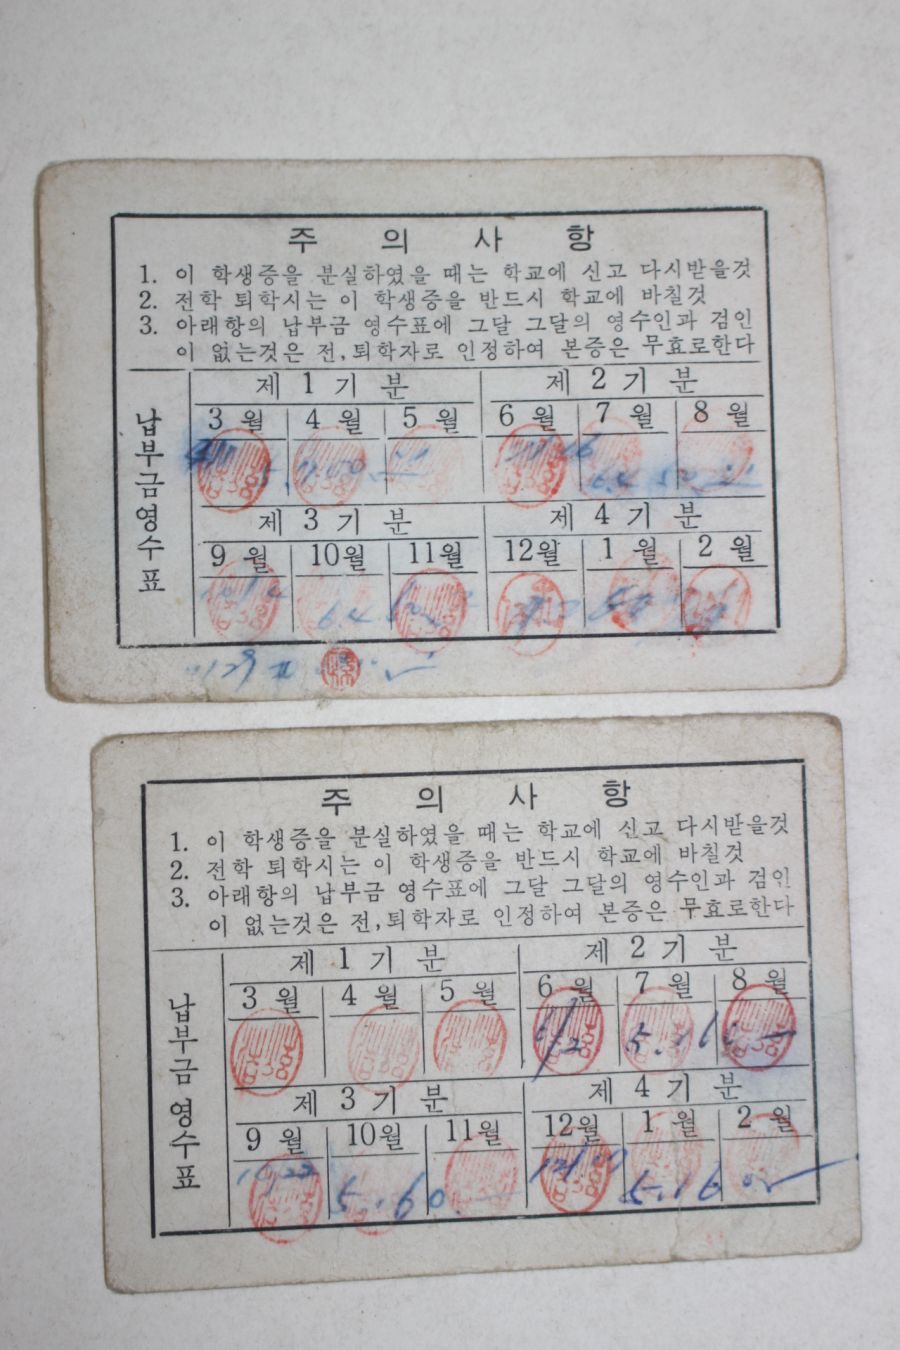 주 의 사 항
1. 이 학생증을 분실하였을 때는 학교에 신고 다시받을것
2. 전학 퇴학시는 이 학생증을 반드시 학교에 바칠것
3. 아래항의 납부금 영수표에 그달 그달의 영수인과 검인
이 없는것은 전,퇴학자로 인정하여 본증은 무효로한다
납부금영수표
제 1 기 분 제 2 기 분
3 월 4 월 5 월 6 월 7 월 8 월
제 3 기 분 제 4 기 분
9 월 10월 11월 12월 1 월 2 월
주 의 사 항
1. 이 학생증을 분실하였을 때는 학교에 신고 다시받을것
2. 전학 퇴학시는 이 학생증을 반드시 학교에 바칠것
3. 아래항의 납부금 영수표에 그달 그달의 영수인과 검인
이 없는것은 전,퇴학자로 인정하여 본증은 무효로한다
납부금 영수표
제 1 기 분 제 2 기 분
3 월 4 월 5 월 6 월 7 월 8 월
제 3 기 분 제 4 기 분
9 월 10월 11월 12월 1 월 2 월